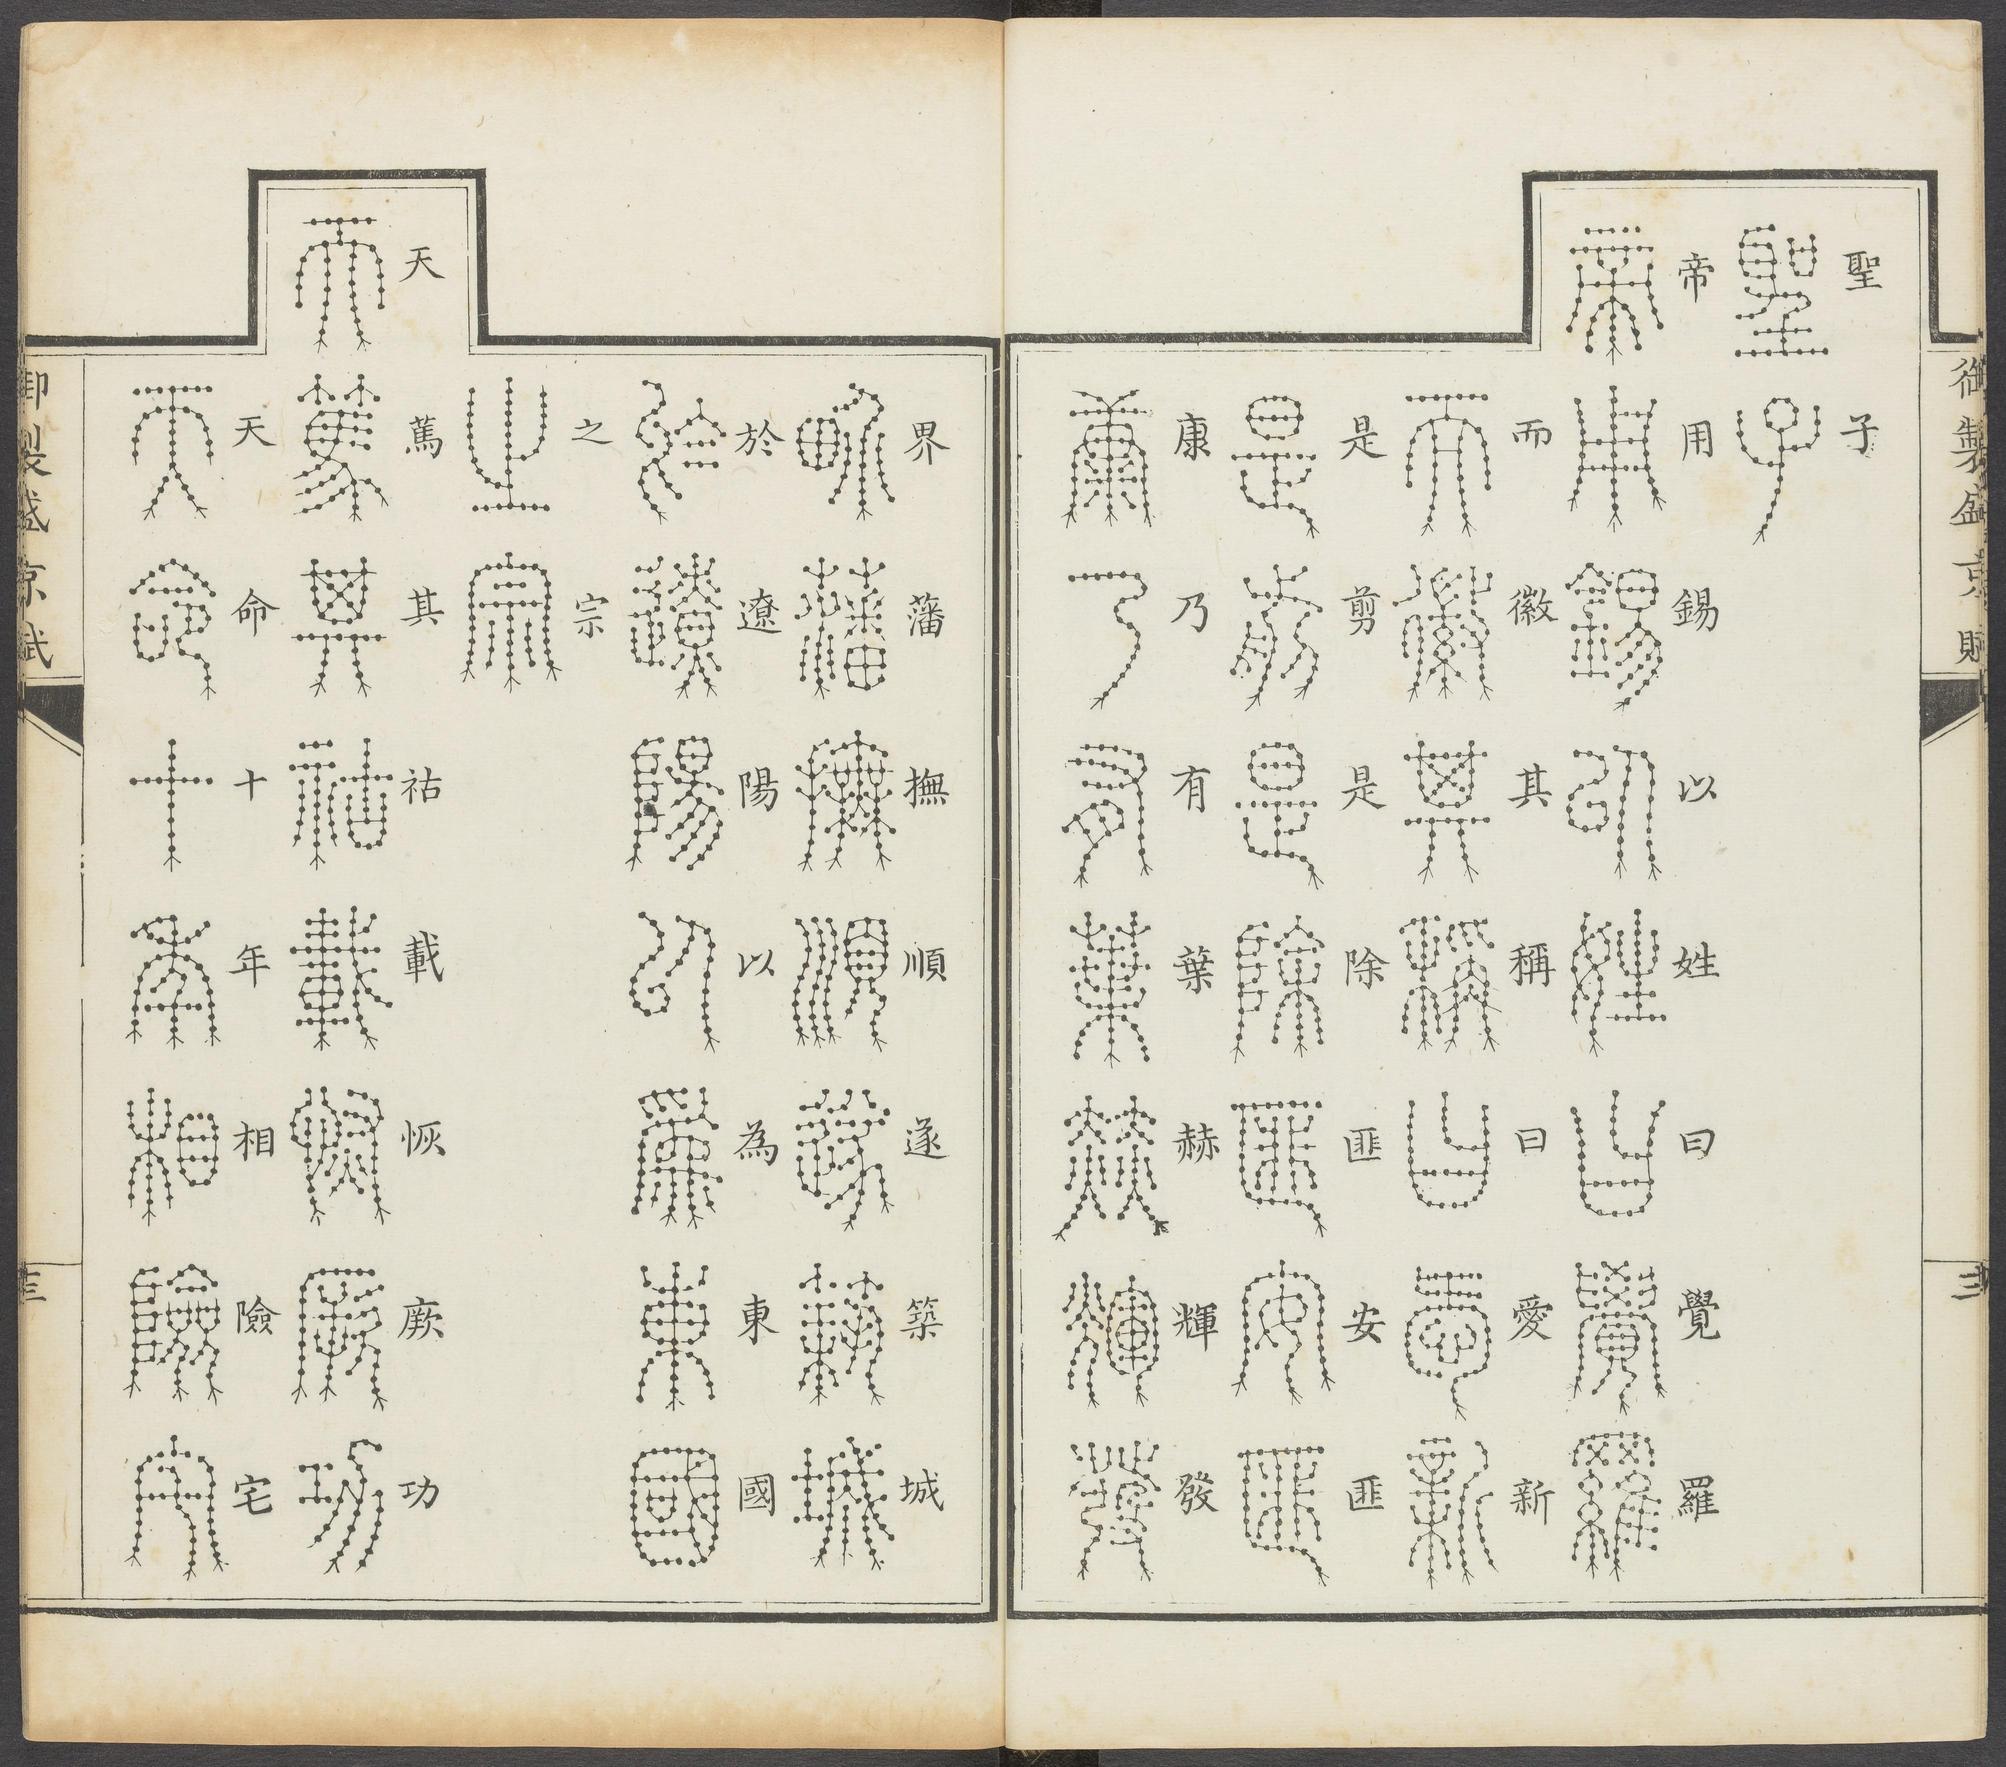 御製盛京賦
三
聖子
帝用錫以姓曰覺羅
而徽其稱曰愛新
是剪是除匪安匪
康乃有葉赫輝發
界藩撫順遂築城
於遼陽以為東國
之宗
天篤其祜載恢厥功
天命十年相險宅
御製盛京賦
三